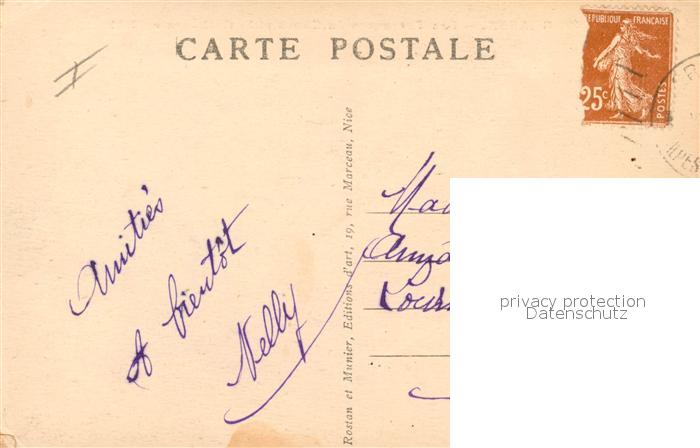 CARTE POSTALE
REPUBLIQUE FRANÇAISE
25c
POSTES
Amitiés
A bientôt
Nelly
Rostan et Munier, Editions d'art, 19, rue Marceau, Nice
privacy protection
Datenschutz